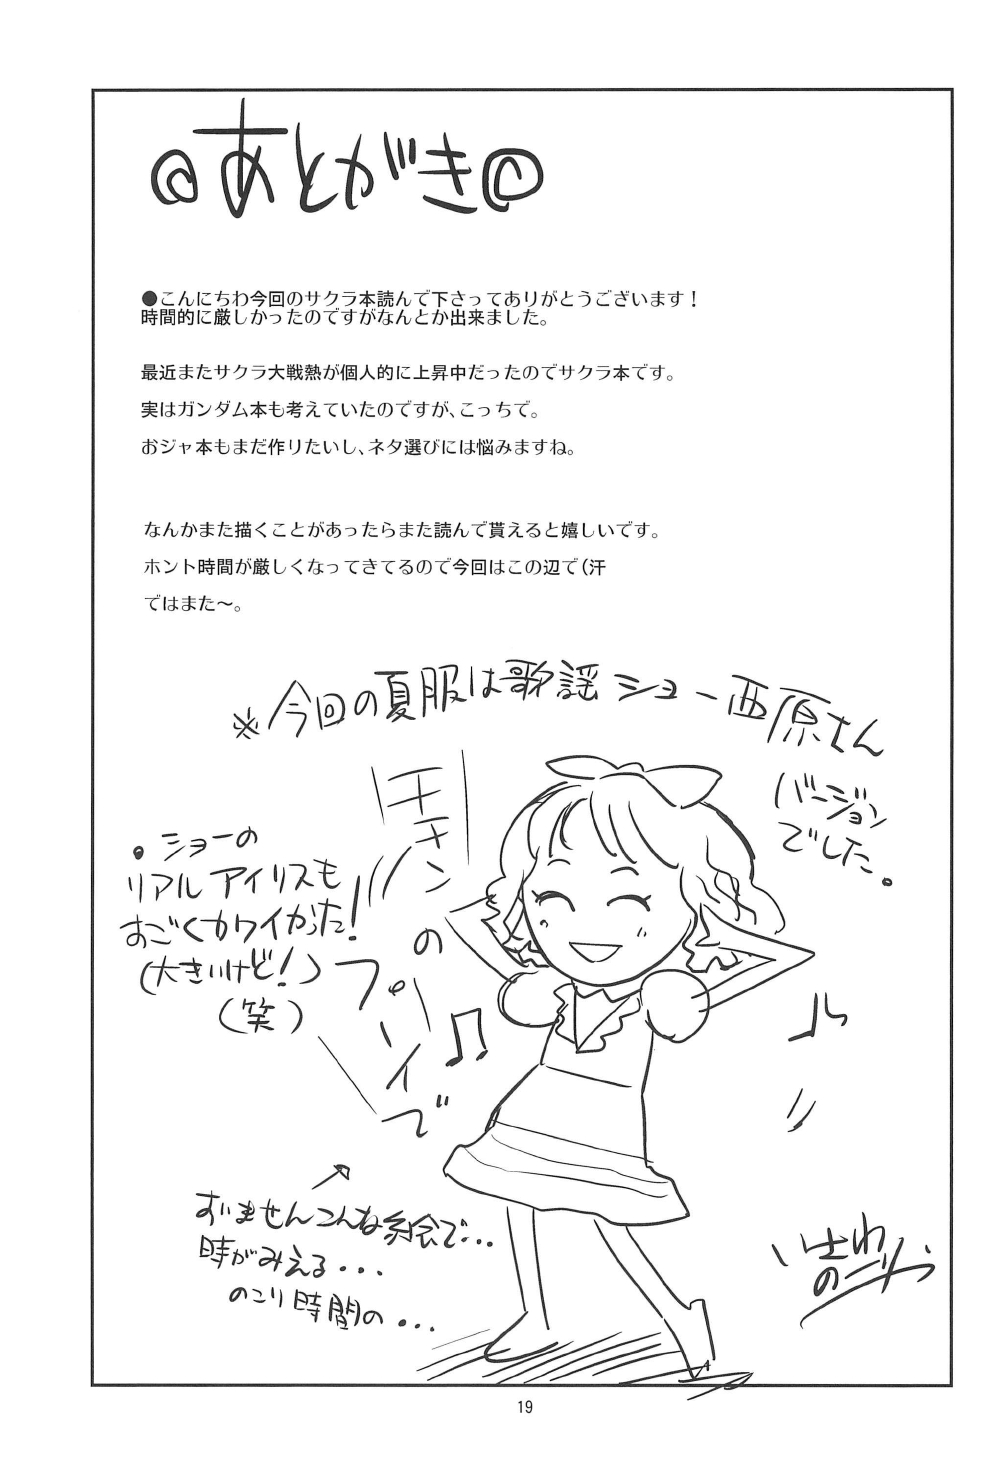 あとがき
●こんにちわ今回のサクラ本読んで下さってありがとうございます！
時間的に厳しかったのですがなんとか出来ました。
最近またサクラ大戦熱が個人的に上昇中だったのでサクラ本です。
実はガンダム本も考えていたのですが、こっちで。
おジャ本もまだ作りたいし、ネタ選びには悩みますね。
なんかまた描くことがあったらまた読んで貰えると嬉しいです。
ホント時間が厳しくなってきてるので今回はこの辺で（汗
ではまた～。
※今回の夏服は歌謡ショー西原さん
バージョン
でした。
・ショーの
リアルアイリスも
すごくカワイかった！
（大きいけど！）
（笑）
のフリで
すいませんこんな絵で・・・
時がみえる・・・
のこり時間の・・・
19